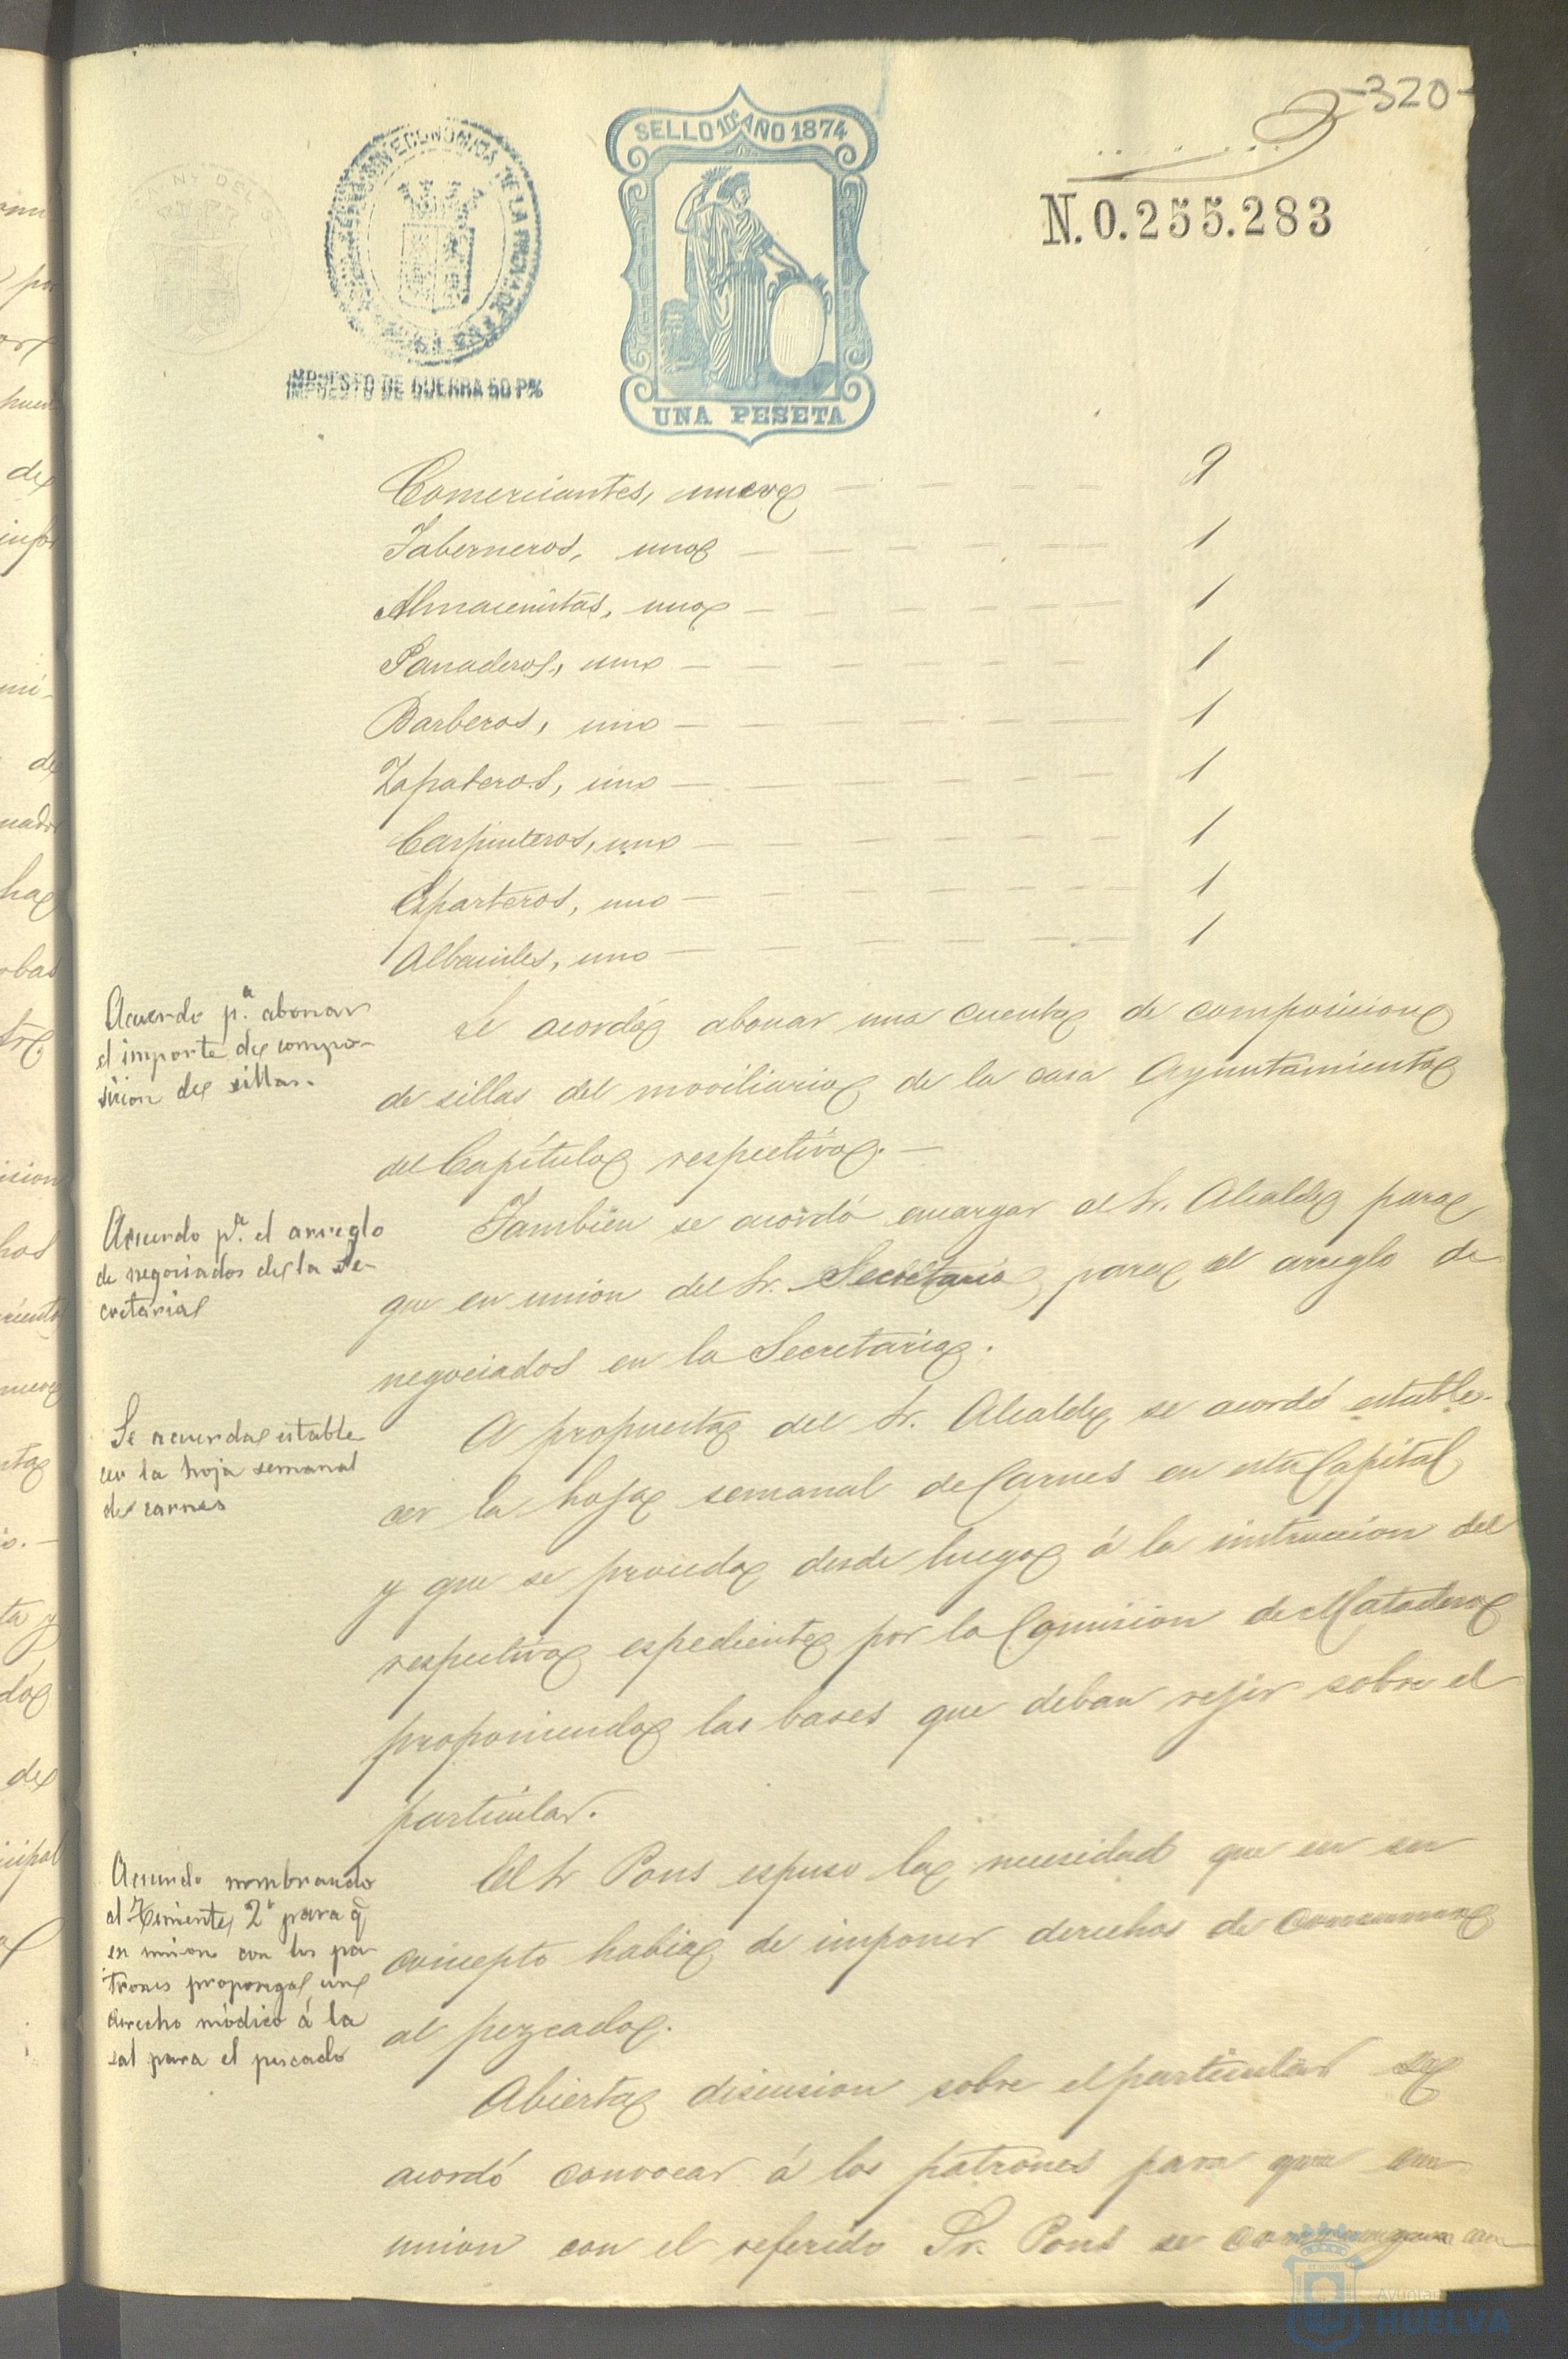 -320-
SELLO 10º AÑO 1874
N.0.255.283
UNA PESETA
IMPUESTO DE GUERRA 50 P%
Comerciantes, nueve 9
Taberneros, uno 1
Almacenistas, uno 1
Panaderos, uno 1
Barberos, uno 1
Zapateros, uno 1
Carpinteros, uno 1
Esparteros, uno 1
Albañiles, uno 1
Acuerdo p.ª abonar
el importe de compo-
sicion de sillas.
Se acordó abonar una cuenta de composicion
de sillas del moviliario de la casa Ayuntamiento
del Capítulo respectivo.
Acuerdo p.ª el arreglo
de negociados de la Se-
cretaria
Tambien se acordó encargar al Sr. Alcalde para
que en union del Sr. Secretario para el arreglo de
negociados en la Secretaria.
Se acuerda estable
cer la hoja semanal
de carnes
A propuesta del Sr. Alcalde se acordó estable-
cer la hoja semanal de Carnes en esta Capital
y que se proceda desde luego á la instruccion del
respectivo espediente por la Comision de Matadero
proponiendo las bases que deban rejir sobre el
particular.
Acuerdo nombrando
al Teniente 2º para q̃
en union con los pa-
trones proponga un
derecho módico á la
sal para el pescado
El Sr Pons espuso la necesidad que en su
concepto habia de imponer derechos de consumo
al pezcado.
Abierta discusion sobre el particular se
acordó convocar á los patrones para que en
union con el referido Sr. Pons se convengan en
Ayuntamiento
HUELVA